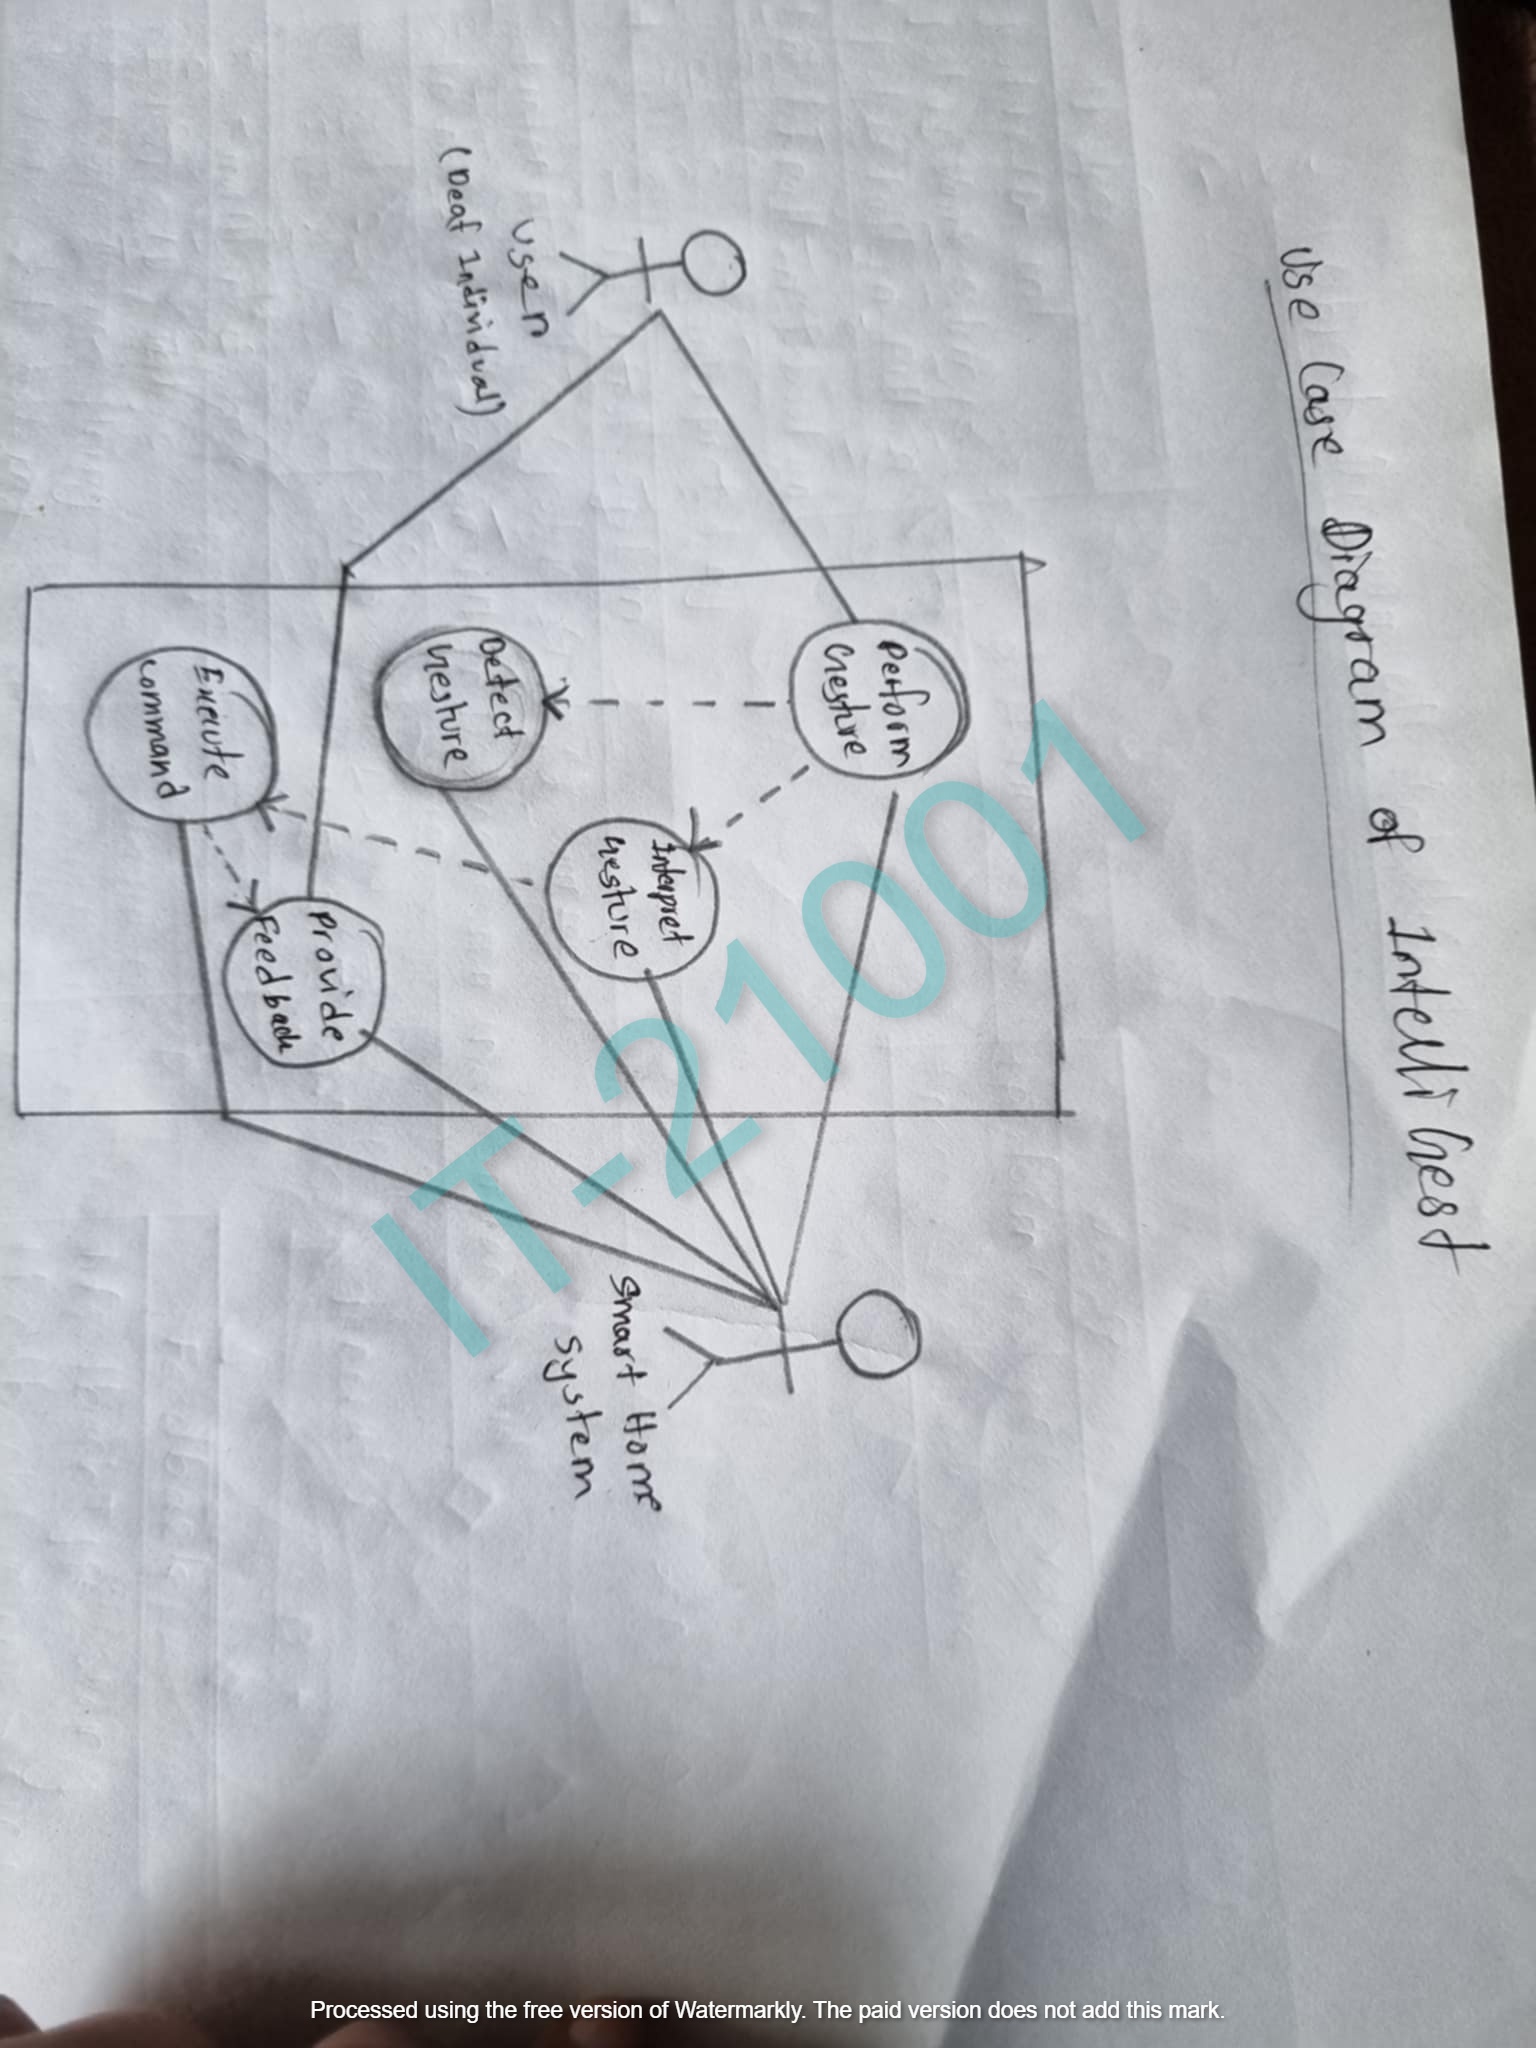 Use Case Diagram of Intelli Gest
User
(Deaf Individual)
Perform
Gesture
Detect
Gesture
Interpret
Gesture
Execute
Command
Provide
Feedback
Smart Home
System
IT-21001
Processed using the free version of Watermarkly. The paid version does not add this mark.